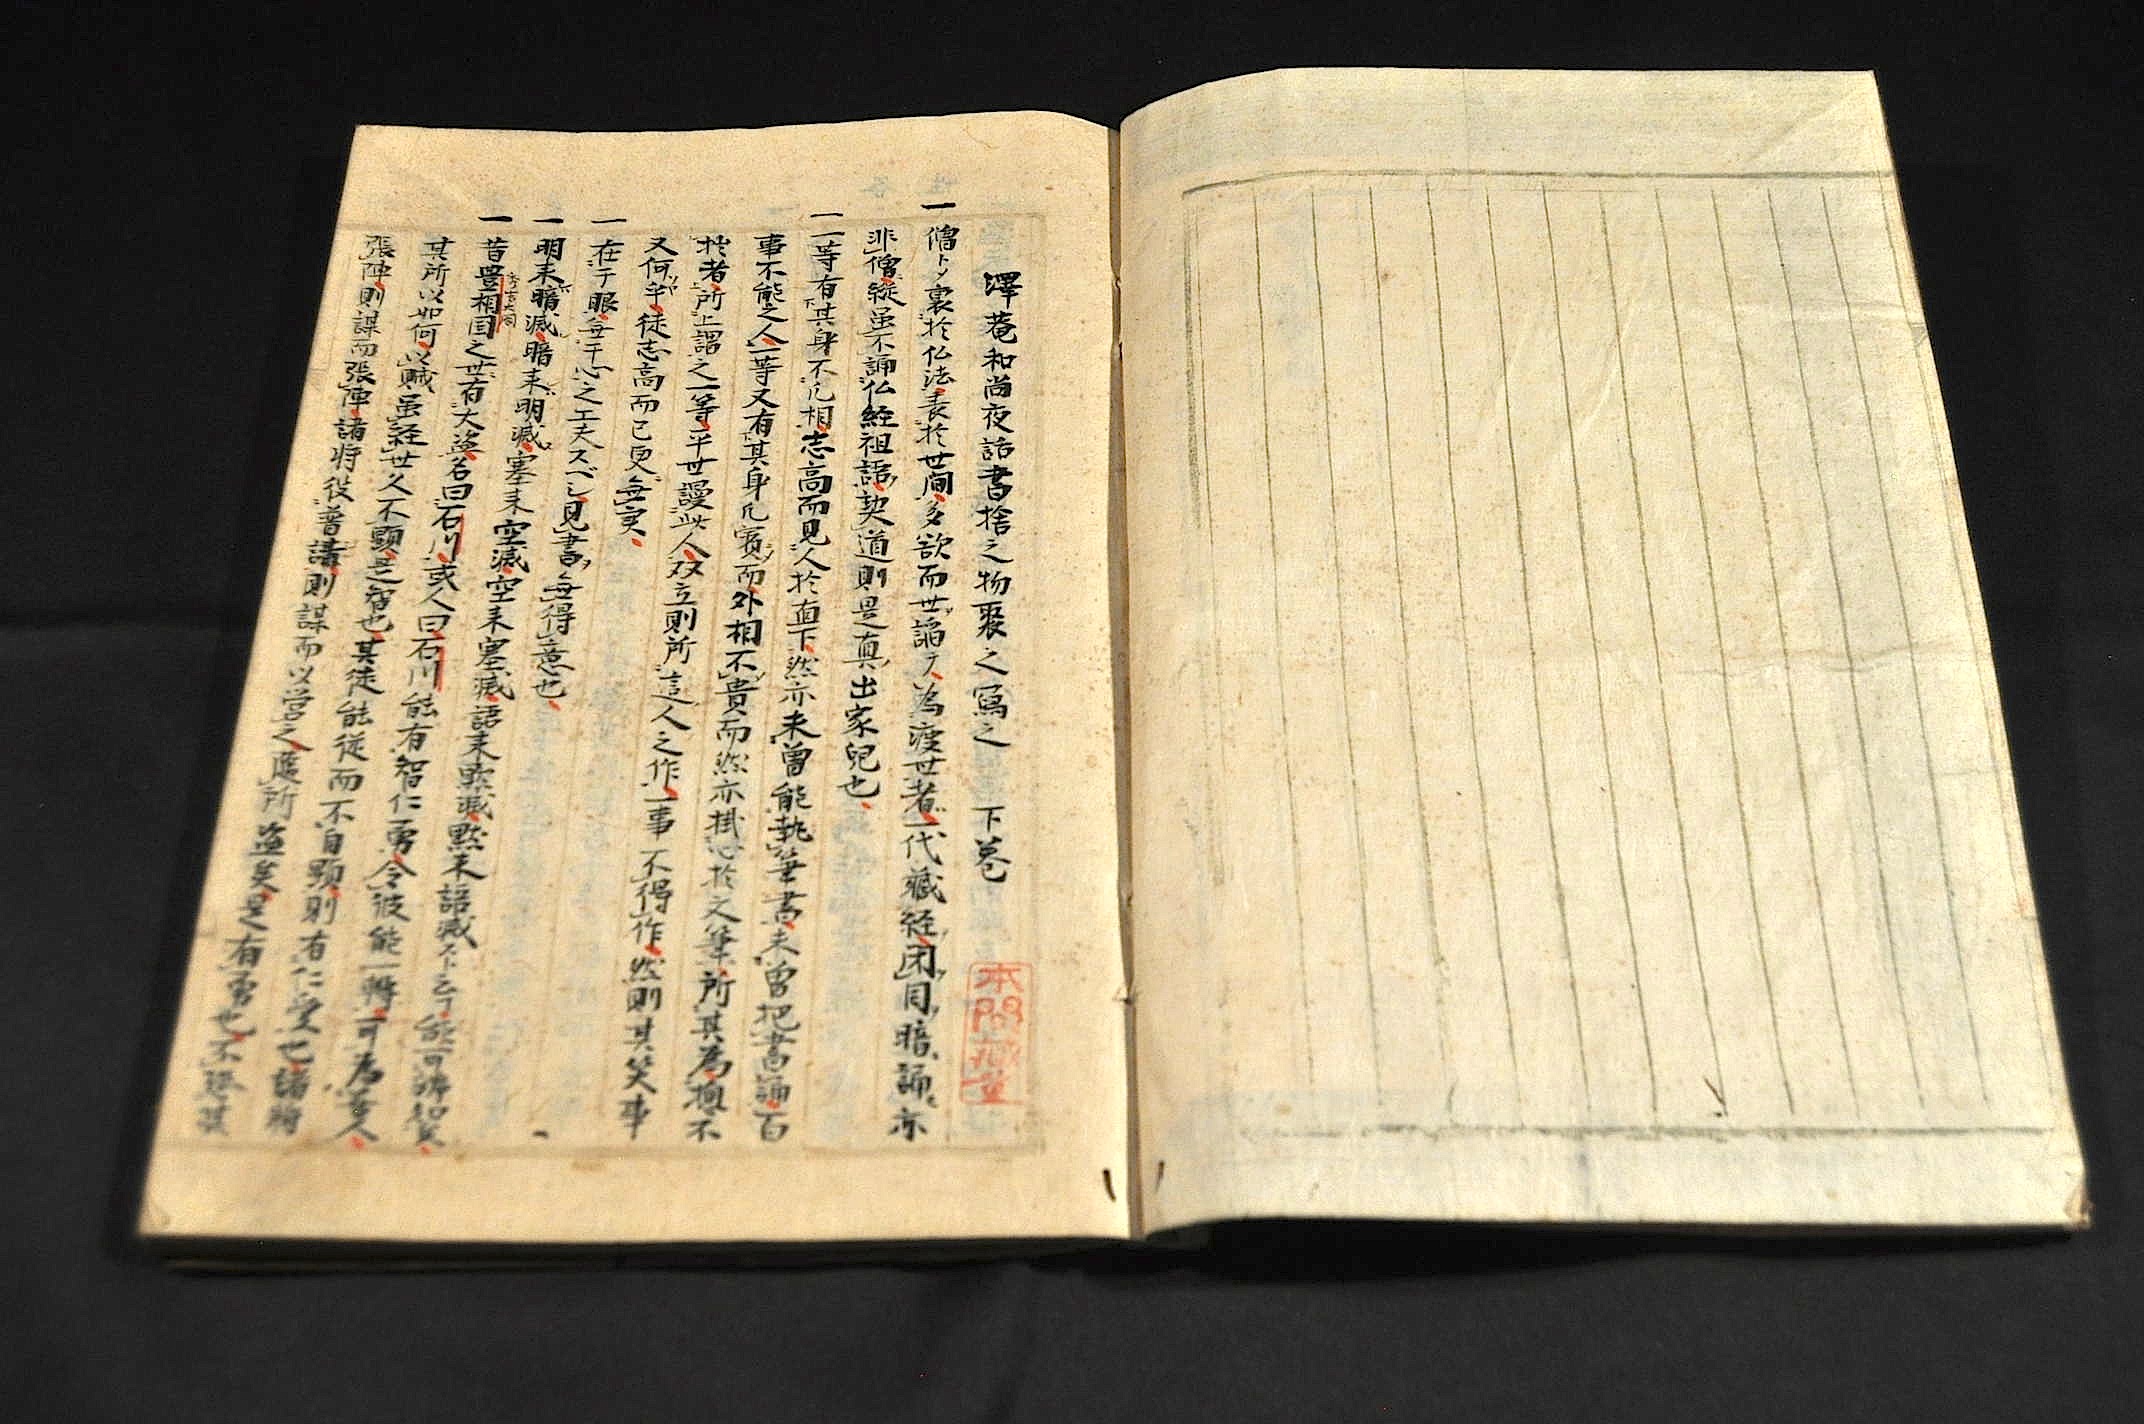 澤菴和尚夜話書捨之物聚之寫之 下巻
一僧トソ裏於仏法表於世間多欲而世謟テ為渡世者一代藏経閉目暗誦亦
非僧縦虽不誦仏経祖語契道則是真出家児也
一一等有其身不凡相志高而見人於直下然亦未曽能執筆書未曽把書誦百
事不能之人一等又有其身凡賓而外相不貴而然亦掛心於文筆所其為無不
於者所上謂之一等平世謾此人双立則所這人之作一事不得作然則其笑事
又何乎徒志高而已更無実
一在于眼無于心之工夫スベシ見書無得意也
一明来暗滅暗来明滅塞来空滅空来塞滅語来黙滅黙来語滅スト云丁能可
一昔豊相国之世有大盗名曰石川或人曰石川能有智仁勇令彼能一将可為
其所以如何以賊虽経世久不顕是智也其徒能従而不自顕則有仁愛也諸将
張陣則謀而張陣諸将役普請則謀而以営之處所盗矣是有勇也不
本間